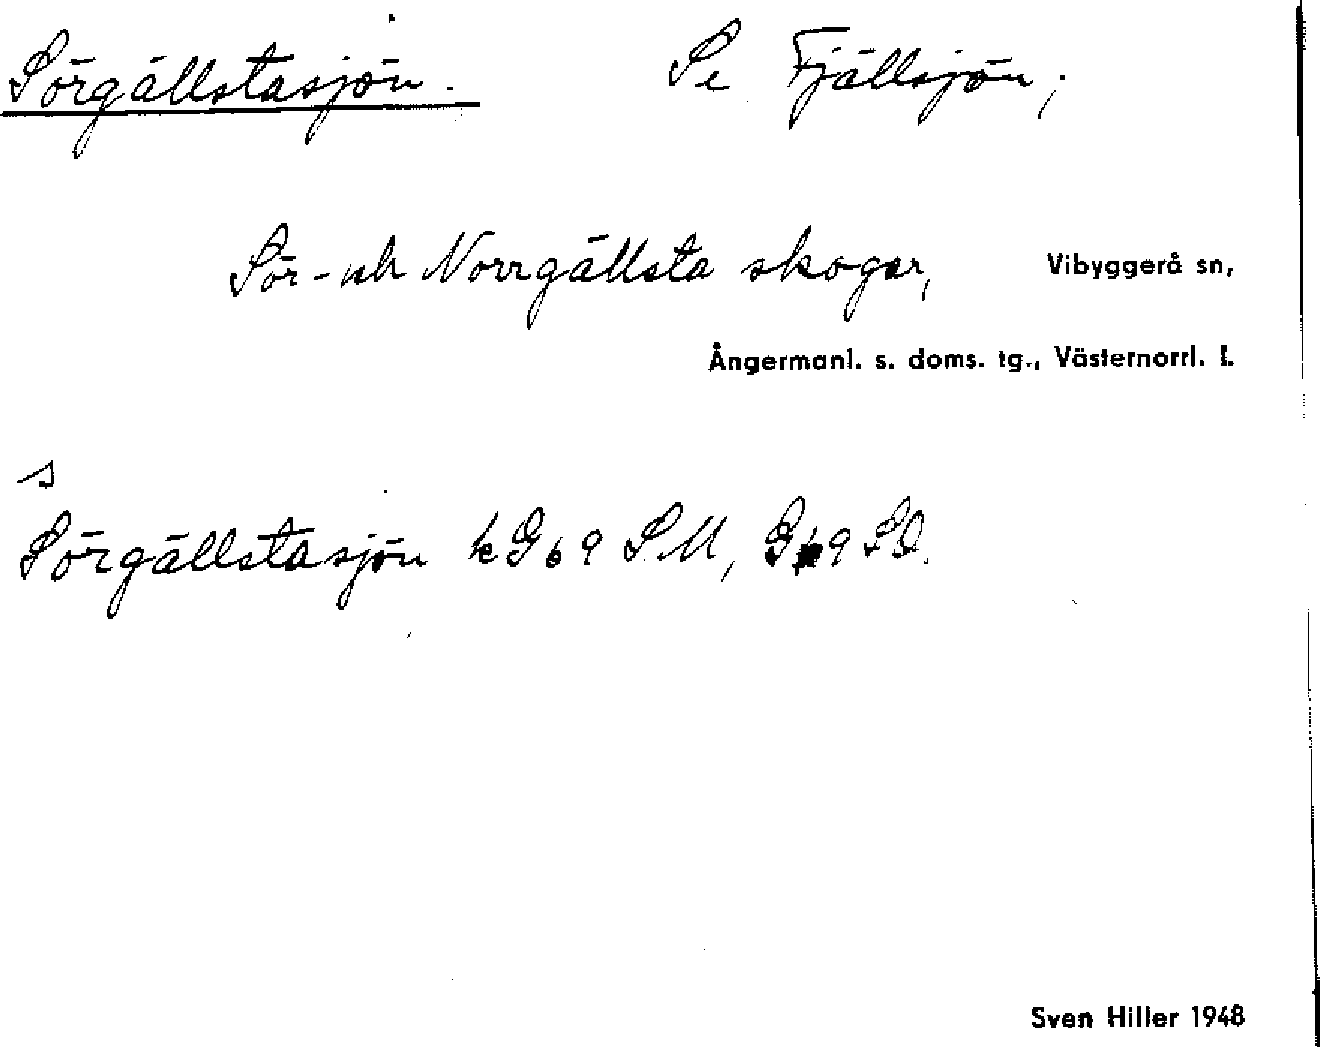 Sörgällstasjön. Se Fjällsjön;
Sör- och Norrgällsta skogar, Vibyggerå sn,
Ångermanl. s. doms. tg., Västernorrl. l.
s
Sörgällstasjön k G 69 SM, 69 SO.
Sven Hiller 1948